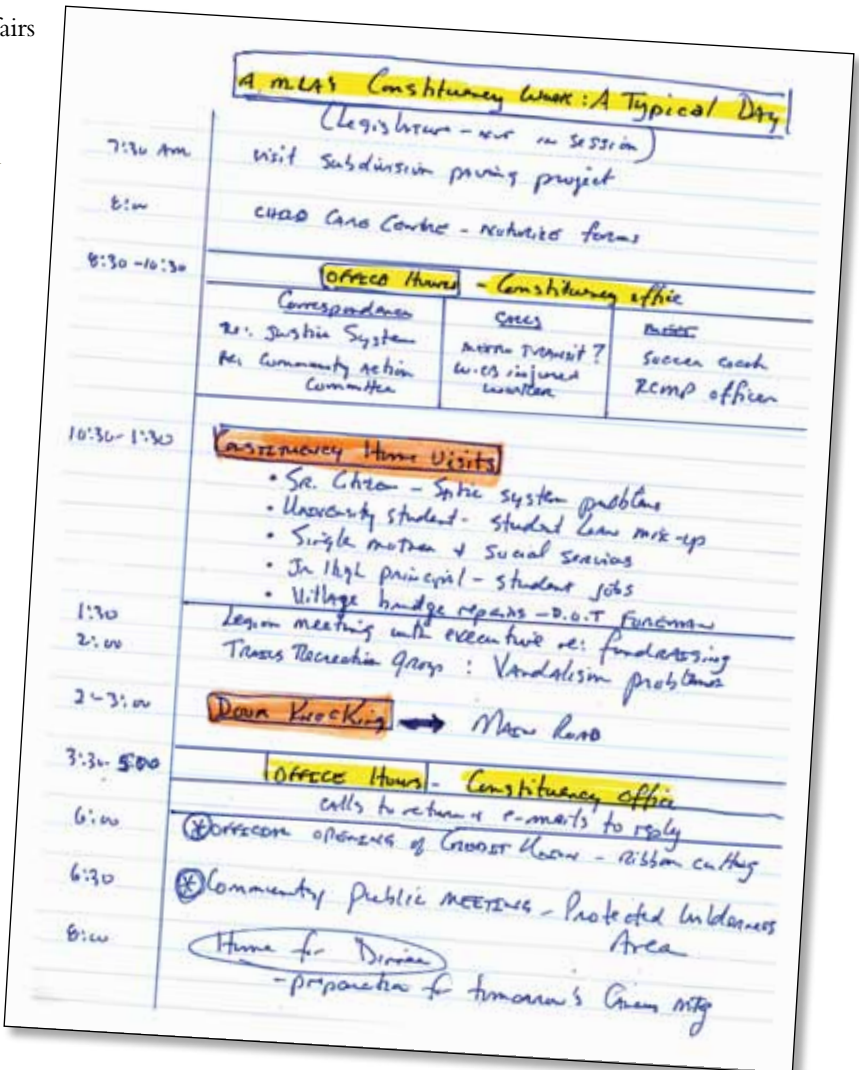 fairs
A MLA's Constituency Work: A Typical Day
(Legislature - not in session)
7:30 AM visit subdivision paving project
8:00 CHILD CARE Centre - notorize forms
8:30-10:30 OFFICE Hours - Constituency office
Correspondence CALLS MEET
Re: Justice System METRO TRANSIT? Soccer coach
Re: Community Action W.C.B injured RCMP officer
Committee worker
10:30-1:30 CONSTITUENCY Home Visits
• SR. Citizen - Septic system problems
• University student - student loan mix-up
• Single mother & social services
• Jr High principal - student jobs
• Village bridge repairs - D.O.T FOREMAN
1:30 Legion meeting with executive re: fundraising
2:00 TRAILS Recreation group: Vandalism problems
2-3:00 DOOR KNOCKING MAIN ROAD
3:30-5:00 OFFICE Hours - Constituency office
calls to return & e-mails to reply
6:00 * OFFICIAL OPENING of CREDIT UNION - Ribbon cutting
6:30 * Community Public MEETING - Protected Wilderness
Area
8:00 Home for Dinner
- preparation for tomorrow's Caucus mtg